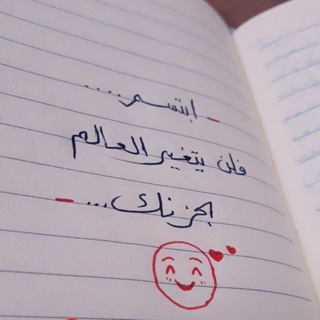 - ابتسم....
فلن يتغير العالم
بحزنك... -